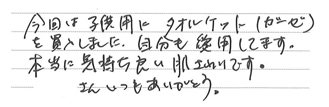 今回は子供用にタオルケット(ガーゼ)
を買入しました。自分も使用してます。
本当に気持ち良い肌ざわりです。
さんいつもありがとう。